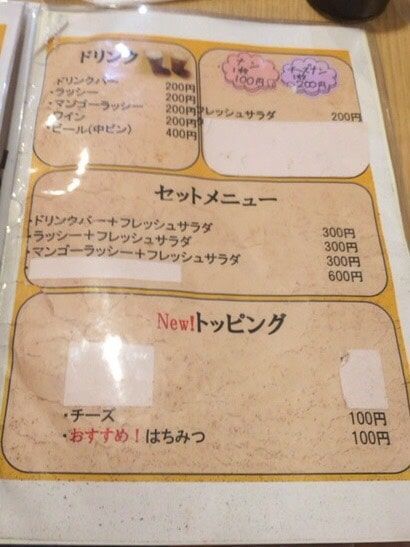 ドリンク
ドリンクバー 200円
・ラッシー 200円
・マンゴーラッシー 200円
ワイン 200円
・ビール(中ビン) 400円
ナン
1枚
100円
チーズナン
1枚
200円
フレッシュサラダ 200円
セットメニュー
・ドリンクバー+フレッシュサラダ 300円
・ラッシー+フレッシュサラダ 300円
・マンゴーラッシー+フレッシュサラダ 300円
600円
New!トッピング
・チーズ 100円
・おすすめ!はちみつ 100円